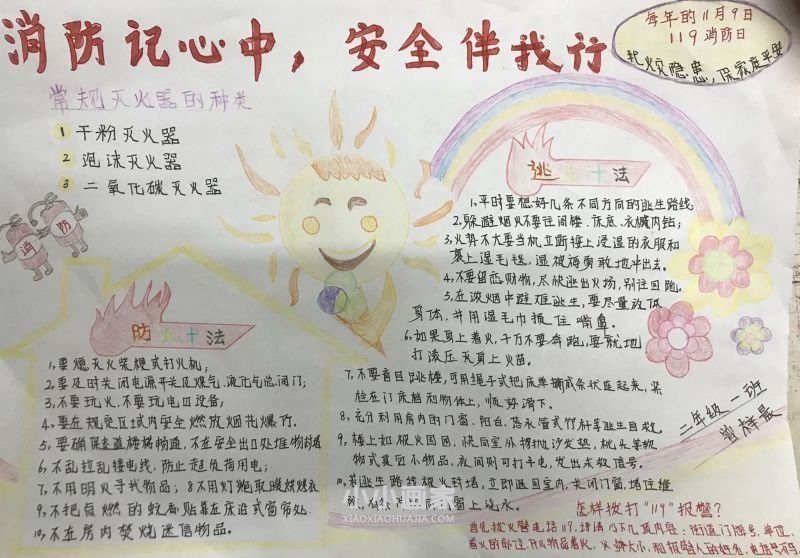 消防记心中，安全伴我行
每年的11月9日
119消防日
找火灾隐患，保家庭平安
常规灭火器的种类
1 干粉灭火器
2 泡沫灭火器
3 二氧化碳灭火器
消 防
防火十法
1、要熄灭火柴梗或打火机；
2、要及时关闭电源开关及煤气、液化气总阀门；
3、不要玩火、不要玩电口设备；
4、要在规定区域内安全燃放烟花爆竹。
5、要确保走道楼梯畅通，不在安全出口处堆物
6、不乱拉乱接电线，防止超负荷用电；
7、不用明火寻找物品；8、不用灯炮取暖烘烤衣
9、不把点燃的蚊香贴靠在床沿或窗帘处
10、不在房内焚烧迷信物品。
逃生十法
1、平时要想好几条不同方向的逃生路线
2、躲避烟火不要往阁楼、床底、衣橱内钻；
3、火势不大要当机立断披上浸湿的衣服和
裹上湿毛毯、湿被褥勇敢地冲出去。
4、不要留恋财物，尽快逃出火场，别往回跑。
5、在浓烟中避难逃生，要尽量放低
身体，并用湿毛巾捂住嘴鼻。
6、如果身上着火，千万不要奔跑，要就地
打滚压灭身上火苗。
7、不要盲目跳楼，可用绳子或把床单撕成条状连起来，紧
拴在门床档和物体上，顺势滑下。
8、充分利用房内的门窗、阳台、落水管或竹杆等逃生自救
9、楼上如被火围困，快向室外抛
物或其它小物品，夜间则可打手电，发出求救信号。
10、若逃生路线被火封堵，立即退回室内，关闭门窗，堵住缝
上浇水。
小小画家
XIAOXIAOHUAJIA.COM
二年级一班
怎样拨打"119"报警？
首先拨火警电话119，